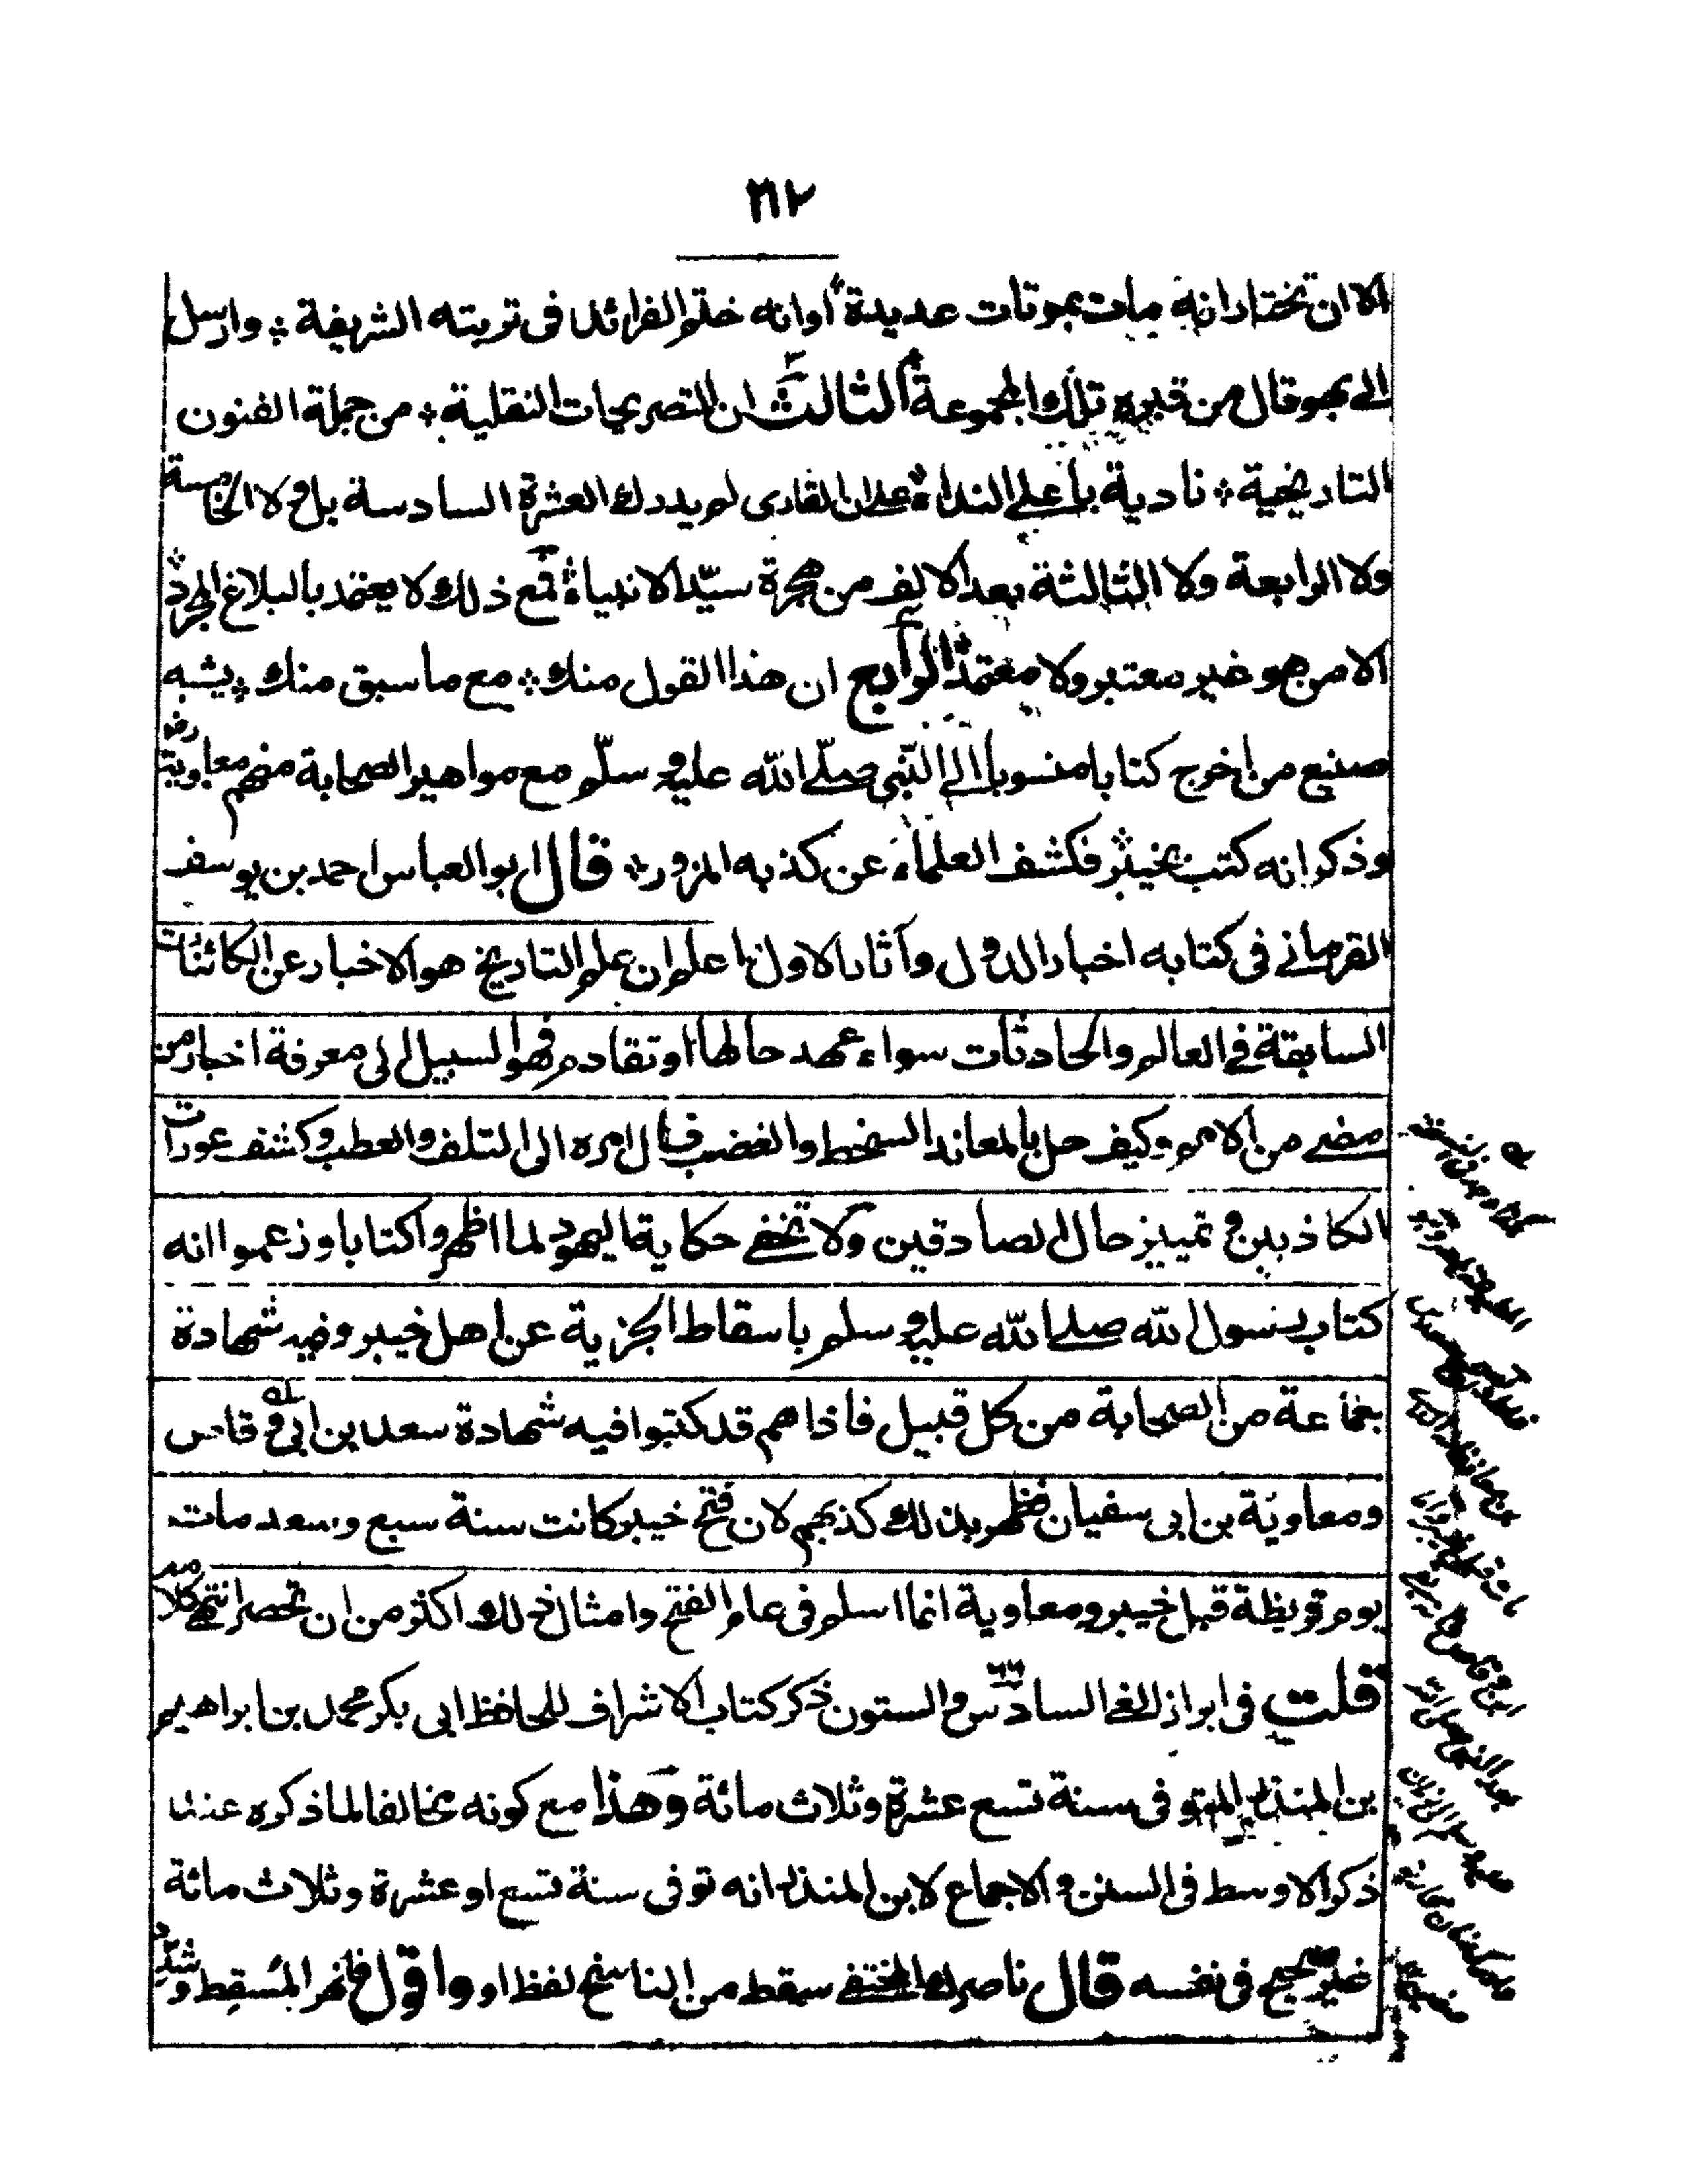 ٢١٢
الا ان تختار انه مات بموتات عديدة او انه ختم الفرائد فى تربته الشريفة ؞ وارسل
الى بهوفال من قبره تلك المجموعة الثالث ان التصريحات النقلية ؞ من جملة الفنون
التاريخية ؞ نادية باعلى النداء على ان القارى لم يدرك العشرة السادسة بل ولا الخامسة
ولا الرابعة ولا الثالثة بعد الالف من هجرة سيّد الانبياء فمع ذلك لا يعتمد بالبلاغ المجرد
الا من هو غير معتبر ولا معتمد الرابع ان هذا القول منك ؞ مع ما سبق منك ؞ يشبه
صنيع من اخرج كتابا منسوبا الى النّبى صلّى الله عليه وسلّم مع مواهير الصحابة منهم معاوية رض
وذكر انه كتب بخيبر فكشف العلماء عن كذبه المزور ؞ قال ابو العباس احمد بن يوسف
القرمانى فى كتابه اخبار الدول وآثار الاول اعلم ان علم التاريخ هو الاخبار عن الكائنات
السابقة فى العالم والحادثات سواء عهد حالها او تقادم فهو السبيل الى معرفة اخبار من
مضى من الامم وكيف حل بالمعاند السخط والغضب فال امره الى التلف والعطب وكشف عورات
الكاذبين وتمييز حال الصادقين ولا تخفى حكاية اليهود لما اظهروا كتابا وزعموا انه
كتاب رسول الله صلى الله عليه وسلم باسقاط الجزية عن اهل خيبر وفيه شهادة
جماعة من الصحابة من كل قبيل فاذا هم قد كتبوا فيه شهادة سعد بن ابى وقاص
ومعاوية بن ابى سفيان فظهر بذلك كذبهم لان فتح خيبر كانت سنة سبع وسعد مات
يوم قريظة قبل خيبر ومعاوية انما اسلم فى عام الفتح وامثال ذلك اكثر من ان تحصر انتهى كلامه
قلت فى ابراز الغى السادس والستون ذكر كتاب الاشراف للحافظ ابى بكر محمد بن ابراهيم
بن المنذر المتوفى سنة تسع عشرة وثلاث مائة وهذا مع كونه مخالفا لما ذكره عند
ذكر الاوسط فى السنن والاجماع لابن المنذر انه توفى سنة تسع او عشرة وثلاث مائة
غير صحيح فى نفسه قال ناصرك المختفى سقط من الناسخ لفظ او واقول فلنهر المُسقِط وشدّد